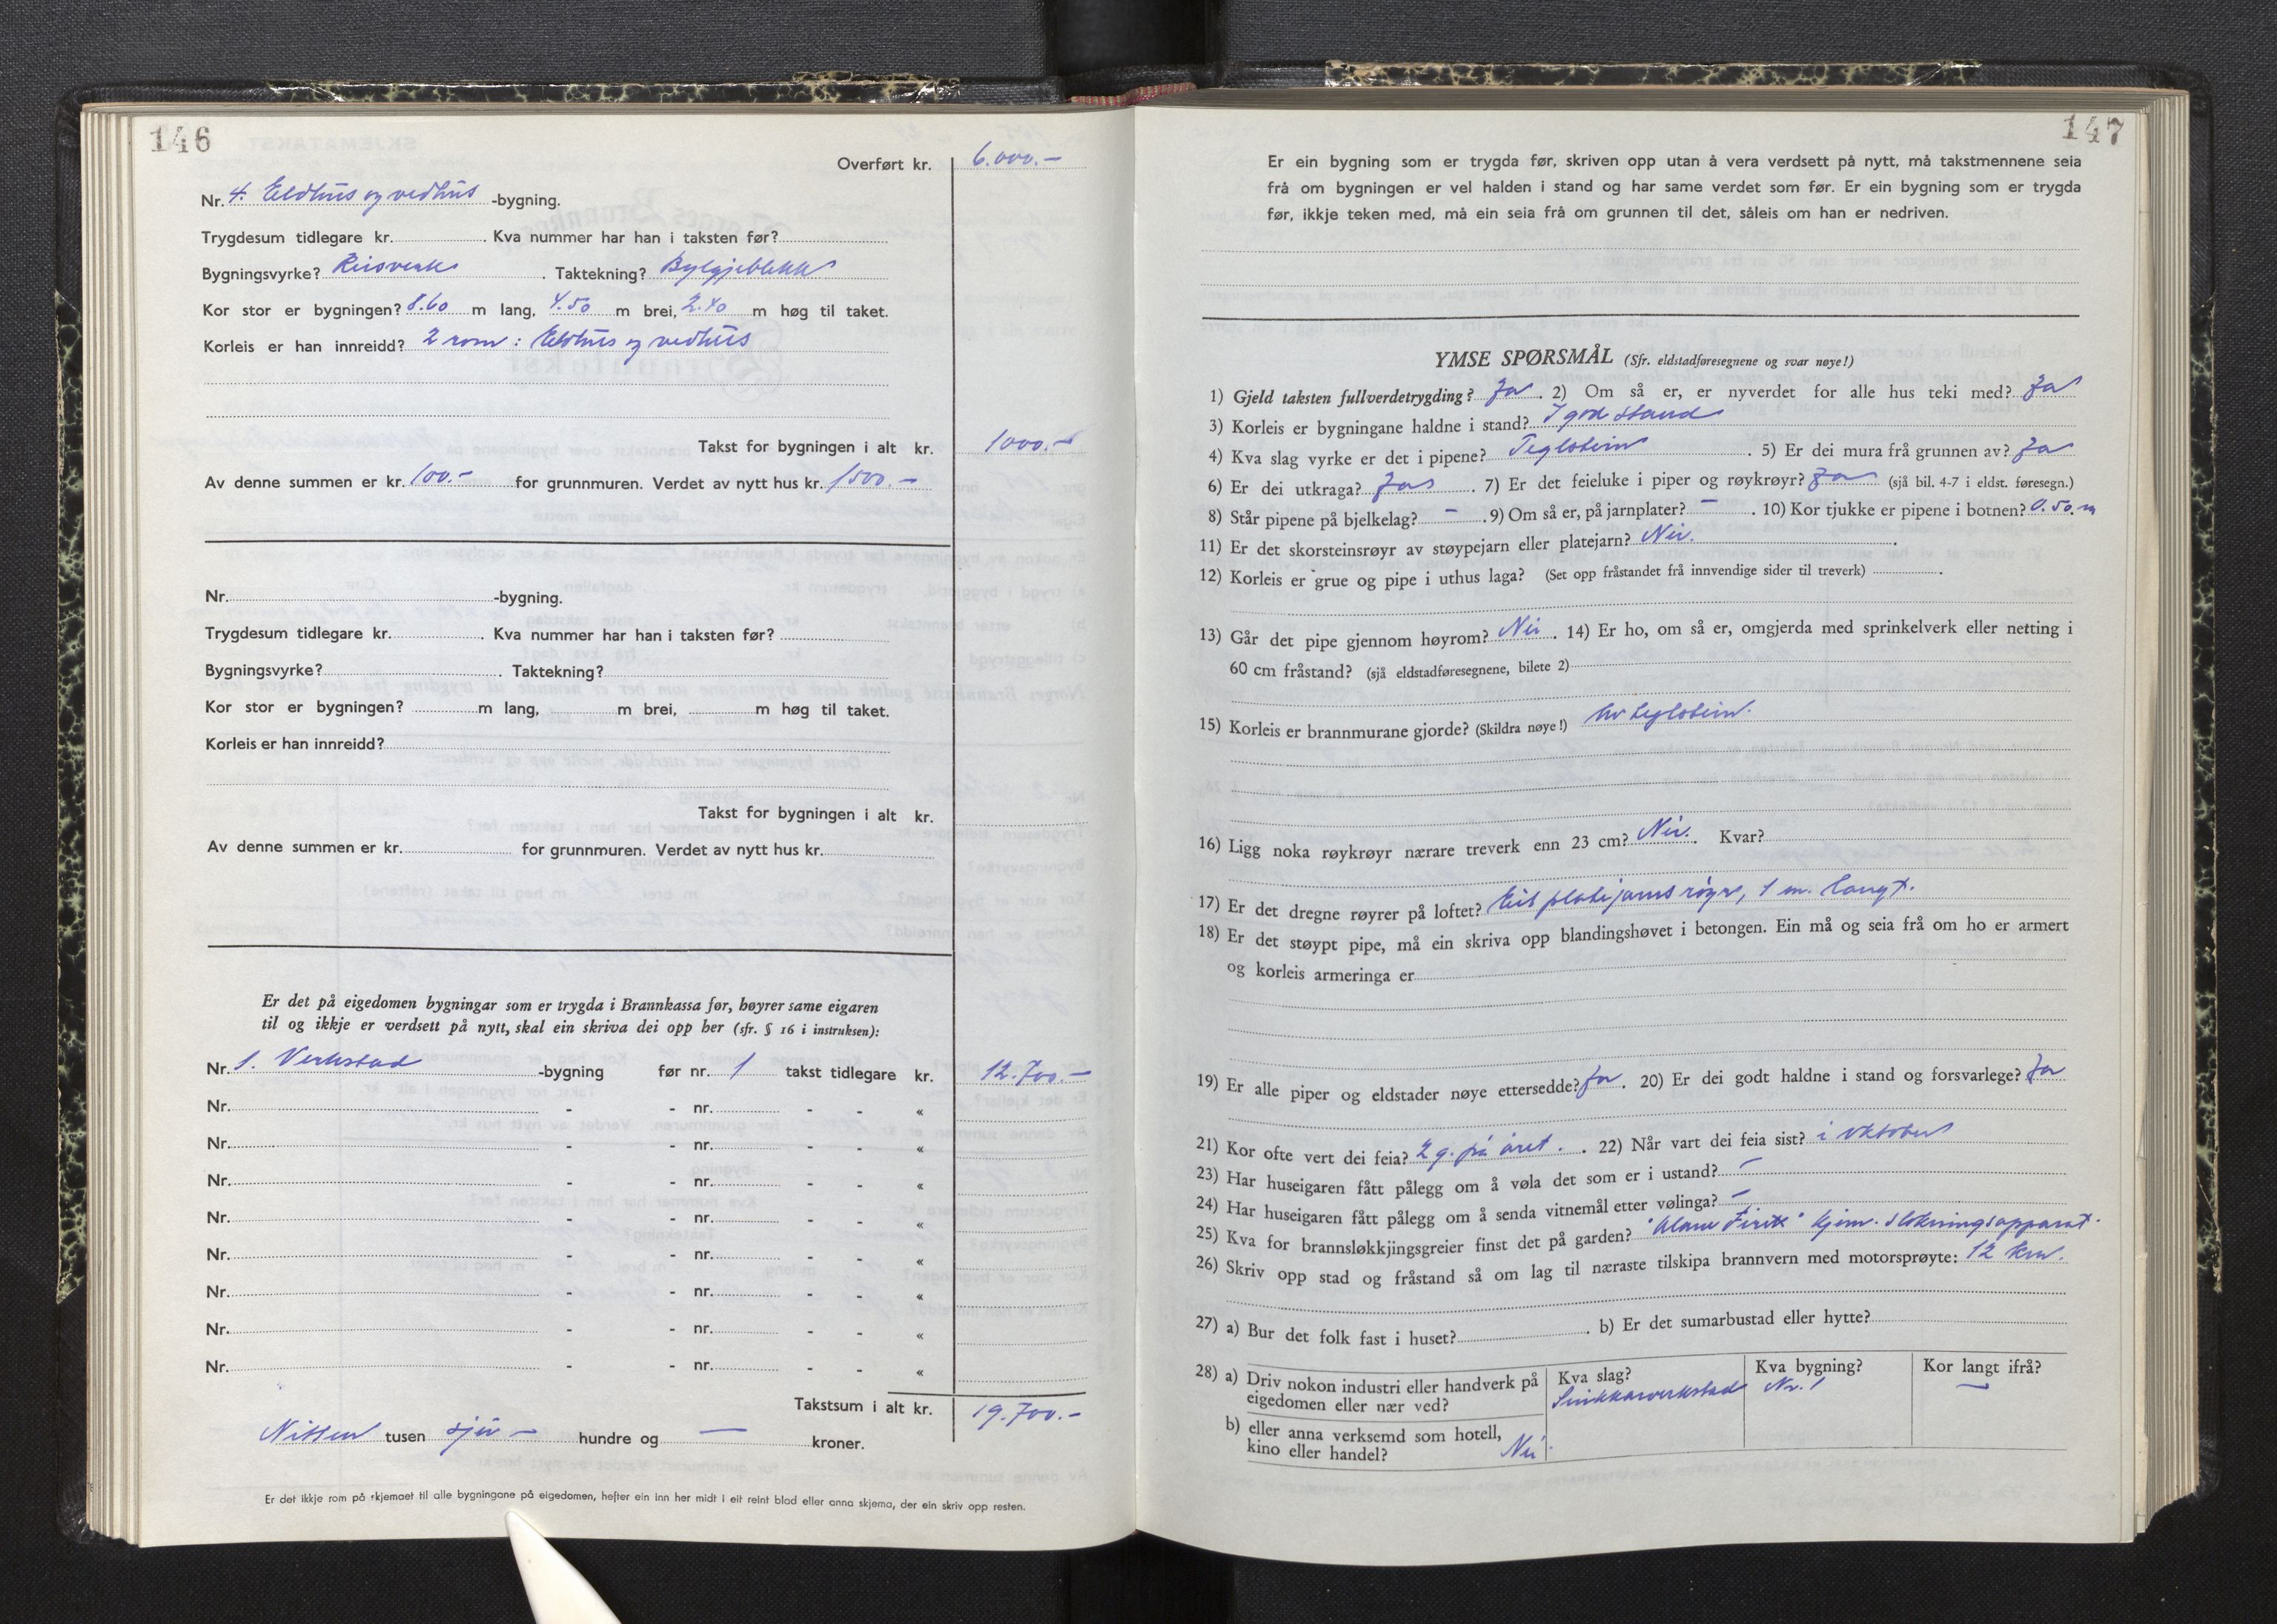 146
Overført kr. 6.000.-
Nr. 4. Eldhus og vedhus -bygning.
Trygdesum tidlegare kr. . Kva nummer har han i taksten før?
Bygningsvyrke? Reisverk . Taktekning? Bylgjeblekk
Kor stor er bygningen? 8.60 m lang, 4.50 m brei, 2.40 m høg til taket.
Korleis er han innreidd? 2 rom: Eldhus og vedhus
Takst for bygningen i alt kr. 1000.-
Av denne summen er kr. 100.- for grunnmuren. Verdet av nytt hus kr. 1500.-
Nr. -bygning.
Trygdesum tidlegare kr. . Kva nummer har han i taksten før?
Bygningsvyrke? . Taktekning?
Kor stor er bygningen? m lang, m brei, m høg til taket.
Korleis er han innreidd?
Takst for bygningen i alt kr.
Av denne summen er kr. for grunnmuren. Verdet av nytt hus kr.
Er det på eigedomen bygningar som er trygda i Brannkassa før, høyrer same eigaren
til og ikkje er verdsett på nytt, skal ein skriva dei opp her (sfr. § 16 i instruksen):
Nr. 1. Verkstad -bygning før nr. 1 takst tidlegare kr. 12.700.-
Nr. - - nr. - - «
Nr. - - nr. - - «
Nr. - - nr. - - «
Nr. - - nr. - - «
Nr. - - nr. - - «
Nr. - - nr. - - «
Nr. - - nr. - - «
Nr. - - nr. - - «
Takstsum i alt kr. 19.700.-
Nitten tusen sju - hundre og - kroner.
Er det ikkje rom på skjemaet til alle bygningane på eigedomen, hefter ein inn her midt i eit reint blad eller anna skjema, der ein skriv opp resten.
147
Er ein bygning som er trygda før, skriven opp utan å vera verdsett på nytt, må takstmennene seia
frå om bygningen er vel halden i stand og har same verdet som før. Er ein bygning som er trygda
før, ikkje teken med, må ein seia frå om grunnen til det, såleis om han er nedriven.
YMSE SPØRSMÅL (Sfr. eldstadføresegnene og svar nøye!)
1) Gjeld taksten fullverdetrygding? Ja . 2) Om så er, er nyverdet for alle hus teki med? Ja
3) Korleis er bygningane haldne i stand? I god stand
4) Kva slag vyrke er det i pipene? Teglstein . 5) Er dei mura frå grunnen av? Ja
6) Er dei utkraga? Ja . 7) Er det feieluke i piper og røykrøyr? Ja (sjå bil. 4-7 i eldst. føresegn.)
8) Står pipene på bjelkelag? - . 9) Om så er, på jarnplater? - . 10) Kor tjukke er pipene i botnen? 0.50. m
11) Er det skorsteinsrøyr av støypejarn eller platejarn? Nei. .
12) Korleis er grue og pipe i uthus laga? (Set opp fråstandet frå innvendige sider til treverk) .
13) Går det pipe gjennom høyrom? Nei . 14) Er ho, om så er, omgjerda med sprinkelverk eller netting i
60 cm fråstand? (sjå eldstadføresegnene, bilete 2)
15) Korleis er brannmurane gjorde? (Skildra nøye!) Av teglstein.
16) Ligg noka røykrøyr nærare treverk enn 23 cm? Nei. . Kvar?
17) Er det dregne røyrer på loftet? Eit platejarns røyr, 1 m. langt.
18) Er det støypt pipe, må ein skriva opp blandingshøvet i betongen. Ein må og seia frå om ho er armert
og korleis armeringa er
19) Er alle piper og eldstader nøye ettersedde? Ja . 20) Er dei godt haldne i stand og forsvarlege? Ja
21) Kor ofte vert dei feia? 2 g. på året. . 22) Når vart dei feia sist? i oktober
23) Har huseigaren fått pålegg om å vøla det som er i ustand? -
24) Har huseigaren fått pålegg om å senda vitnemål etter vølinga? -
25) Kva for brannsløkkjingsgreier finst det på garden? kjem. slökningsapparat.
26) Skriv opp stad og fråstand så om lag til næraste tilskipa brannvern med motorsprøyte: 12 km.
27) a) Bur det folk fast i huset? . b) Er det sumarbustad eller hytte?
28) a) Driv nokon industri eller handverk på
eigedomen eller nær ved?
Kva slag? Kva bygning? Kor langt ifrå?
Snikkarverkstad Nr. 1 -
b) eller anna verksemd som hotell,
kino eller handel? Nei.